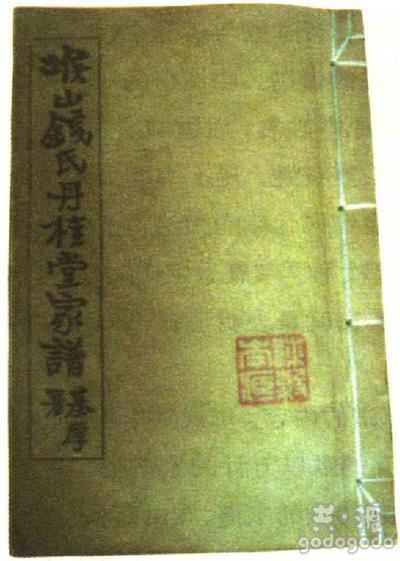 堠山錢氏丹桂堂家譜
基厚
署
godogodo